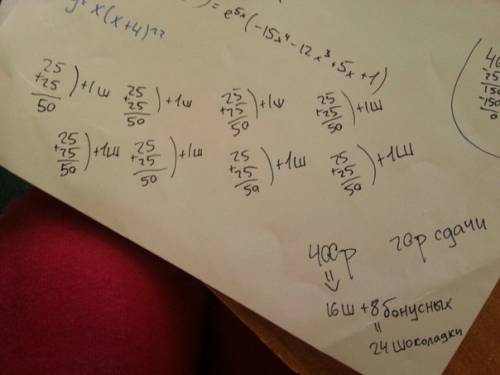 = e^5x(-15x⁴-12x³+5x+1)
x(x+4)
25 +25 50 ) +1ш 25 +25 50 ) +1ш 25 +25 50 ) +1ш 25 +25 50 ) +1ш
25 +25 50 ) +1ш 25 +25 50 ) +1ш 25 +25 50 ) +1ш 25 +25 50 ) +1ш
400р сдачи
16ш + 8 бонусных
=
24 шоколадки